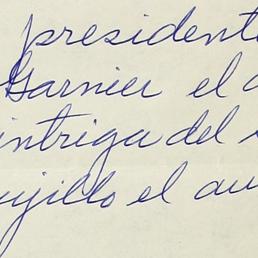 president
Garnier el
intriga del
ujillo el au